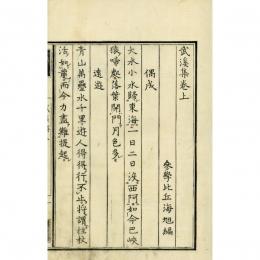 武溪集卷上
參學比丘海旭編
偶成
大水小水歸東海一日二日沒西阿如今巴峽
猿啼處落葉開門月色多
遠遊
青山萬疊水千里遊人得得行不步將謂拄杖
活如龍而今力盡難提起